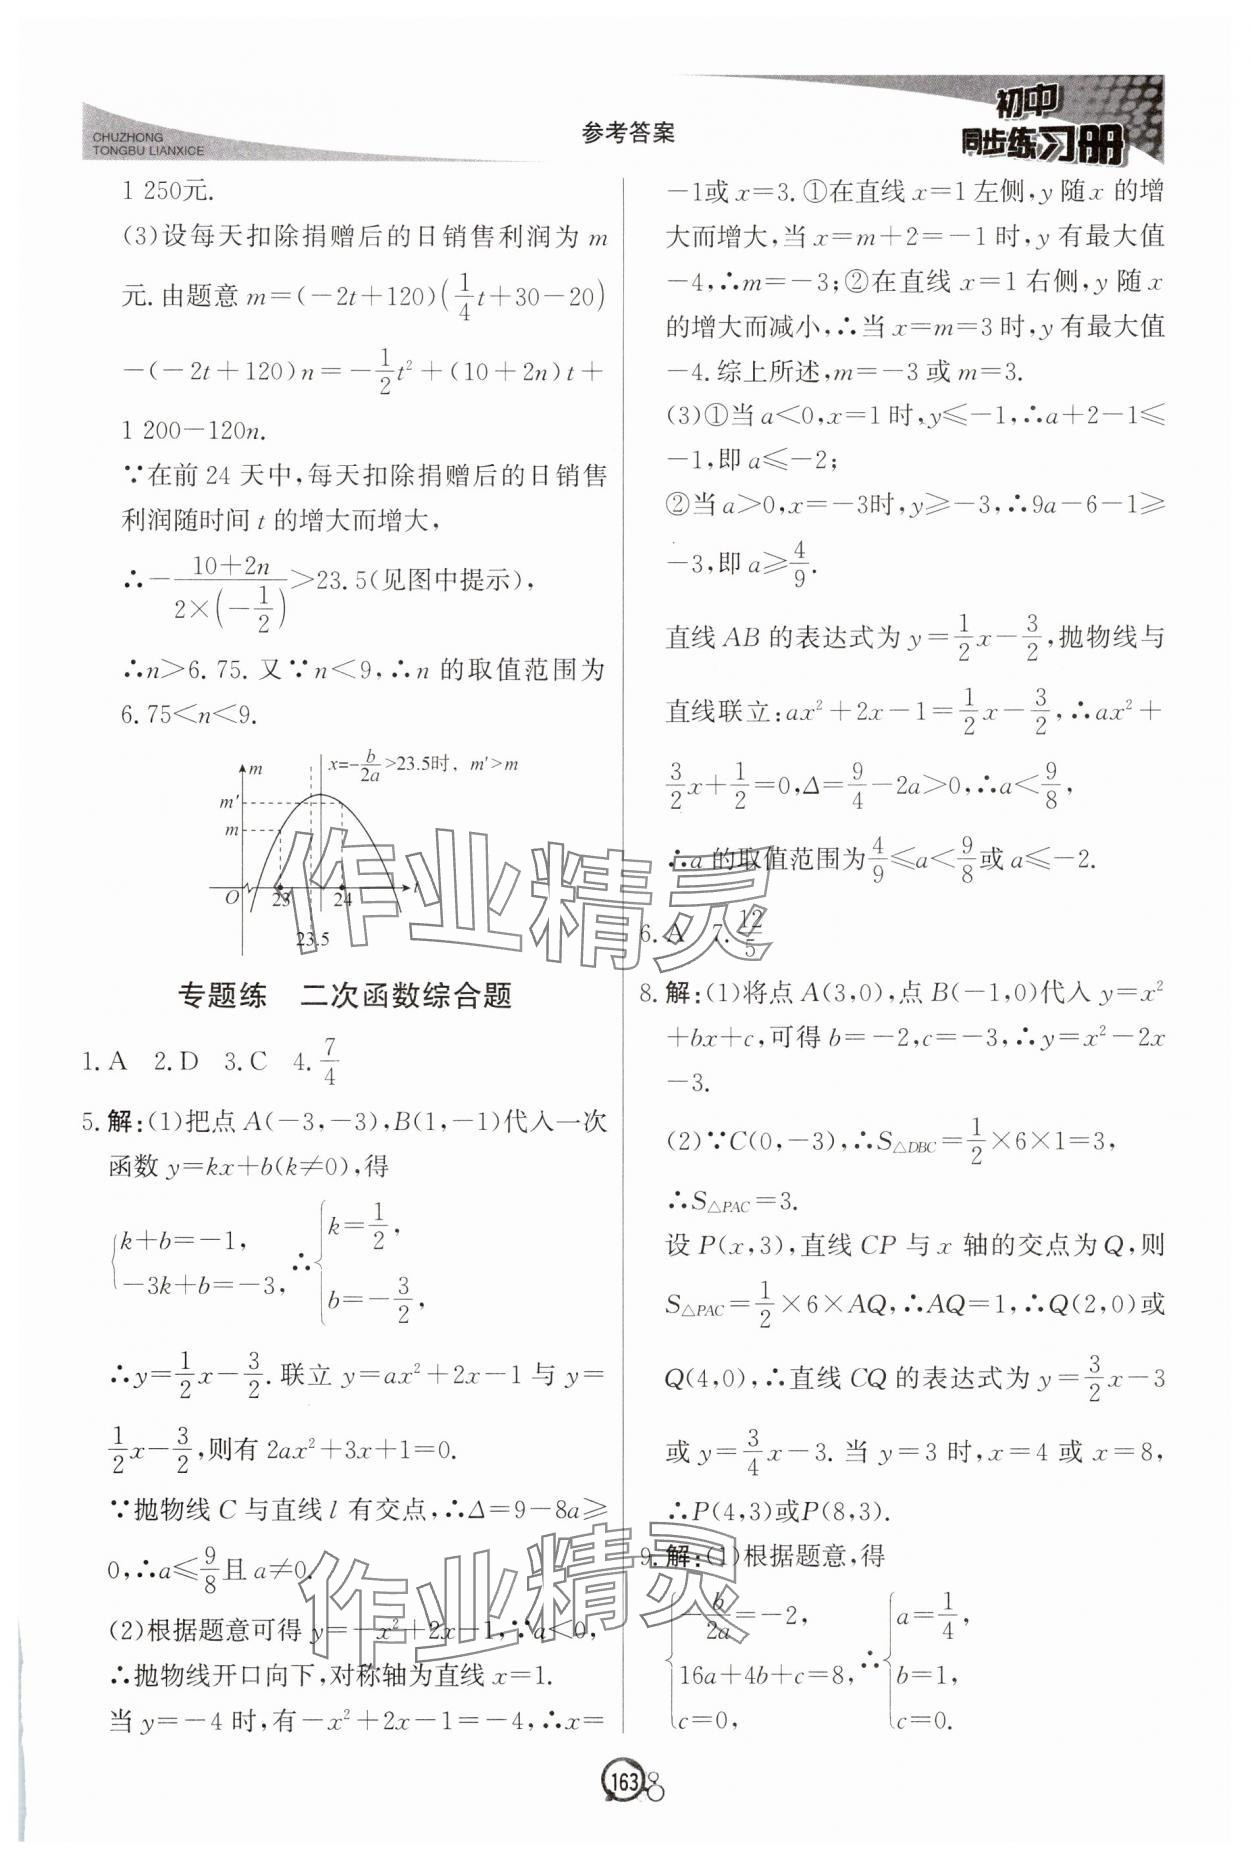 CHUZHONG
TONGBU LIANXICE
参考答案
初中
同步练习册
1 250元.
(3)设每天扣除捐赠后的日销售利润为 m
元.由题意 m=(-2t+120)(1/4 t+30-20)
-(-2t+120)n=-1/2 t²+(10+2n)t+
1 200-120n.
∵在前 24 天中,每天扣除捐赠后的日销售
利润随时间 t 的增大而增大,
∴-(10+2n)/(2×(-1/2))>23.5(见图中提示),
∴n>6.75.又∵n<9,∴n 的取值范围为
6.75<n<9.
x=-b/2a>23.5时, m'>m
m
m'
m
O
23
24
t
23.5
专题练 二次函数综合题
1.A 2.D 3.C 4.7/4
5.解:(1)把点 A(-3,-3),B(1,-1)代入一次
函数 y=kx+b(k≠0),得
{k+b=-1, -3k+b=-3, ∴{k=1/2, b=-3/2,
∴y=1/2 x-3/2.联立 y=ax²+2x-1 与 y=
1/2 x-3/2,则有 2ax²+3x+1=0.
∵抛物线 C 与直线 l 有交点,∴Δ=9-8a≥
0,∴a≤9/8且 a≠0.
(2)根据题意可得 y=-x²+2x-1,∵a<0,
∴抛物线开口向下,对称轴为直线 x=1.
当 y=-4 时,有-x²+2x-1=-4,∴x=
-1或 x=3.①在直线 x=1 左侧,y 随 x 的增
大而增大,当 x=m+2=-1 时,y 有最大值
-4,∴m=-3;②在直线 x=1 右侧,y 随 x
的增大而减小,∴当 x=m=3 时,y 有最大值
-4.综上所述,m=-3 或 m=3.
(3)①当 a<0,x=1 时,y≤-1,∴a+2-1≤
-1,即 a≤-2;
②当 a>0,x=-3时,y≥-3,∴9a-6-1≥
-3,即 a≥4/9.
直线 AB 的表达式为 y=1/2 x-3/2,抛物线与
直线联立:ax²+2x-1=1/2 x-3/2,∴ax²+
3/2 x+1/2=0,Δ=9/4-2a>0,∴a<9/8,
∴a 的取值范围为4/9≤a<9/8或 a≤-2.
6.A 7.12/5
8.解:(1)将点 A(3,0),点 B(-1,0)代入 y=x²
+bx+c,可得 b=-2,c=-3,∴y=x²-2x
-3.
(2)∵C(0,-3),∴S△DBC=1/2×6×1=3,
∴S△PAC=3.
设 P(x,3),直线 CP 与 x 轴的交点为 Q,则
S△PAC=1/2×6×AQ,∴AQ=1,∴Q(2,0)或
Q(4,0),∴直线 CQ 的表达式为 y=3/2 x-3
或 y=3/4 x-3.当 y=3 时,x=4 或 x=8,
∴P(4,3)或P(8,3).
9.解:(1)根据题意,得
{-b/2a=-2, 16a+4b+c=8, c=0, ∴{a=1/4, b=1, c=0.
163
作业精灵
作业精灵